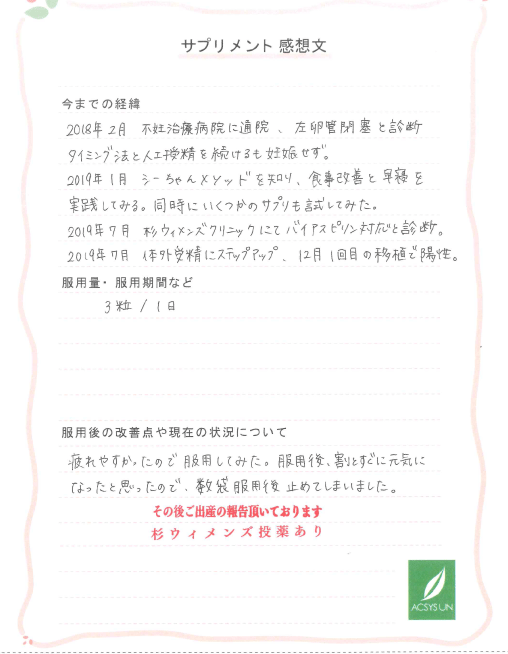 サプリメント 感想文
今までの経緯
2018年2月 不妊治療病院に通院、左卵管閉塞と診断
タイミング法と人工授精を続けるも妊娠せず。
2019年1月 シーちゃんメソッドを知り、食事改善と早寝を
実践してみる。同時にいくつかのサプリも試してみた。
2019年7月 杉ウィメンズクリニックにてバイアスピリン対応と診断。
2019年7月 体外受精にステップアップ、12月1回目の移植で陽性。
服用量・服用期間など
3粒 / 1日
服用後の改善点や現在の状況について
疲れやすかったので服用してみた。服用後、割とすぐに元気に
なったと思ったので、数袋服用後止めてしまいました。
その後ご出産の報告頂いております
杉ウィメンズ投薬あり
ACSYSUN